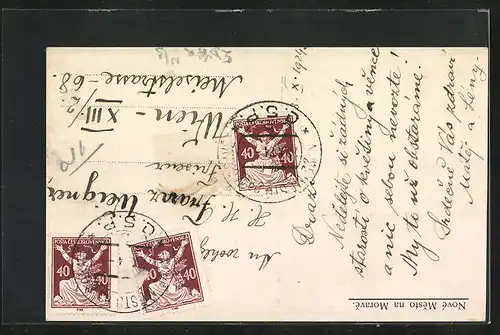 X. 1924.
Drazí
Nedělejte si žádných
starostí o květiny a věnce
a nic sebou nevezte!
My to už obstaráme.
Srdečně Vás zdraví
Matěj a ženy.
Nové Město na Moravě.
H. H.
Franz Weigner,
Friseur
Wien - XIII/2.
Meiselstrasse - 68.
POŠTA ČESKOSLOVENSKÁ
40 40
POŠTA ČESKOSLOVENSKÁ
40 40
POŠTA ČESKOSLOVENSKÁ
40 40
Č.S.P.
Č.S.P.